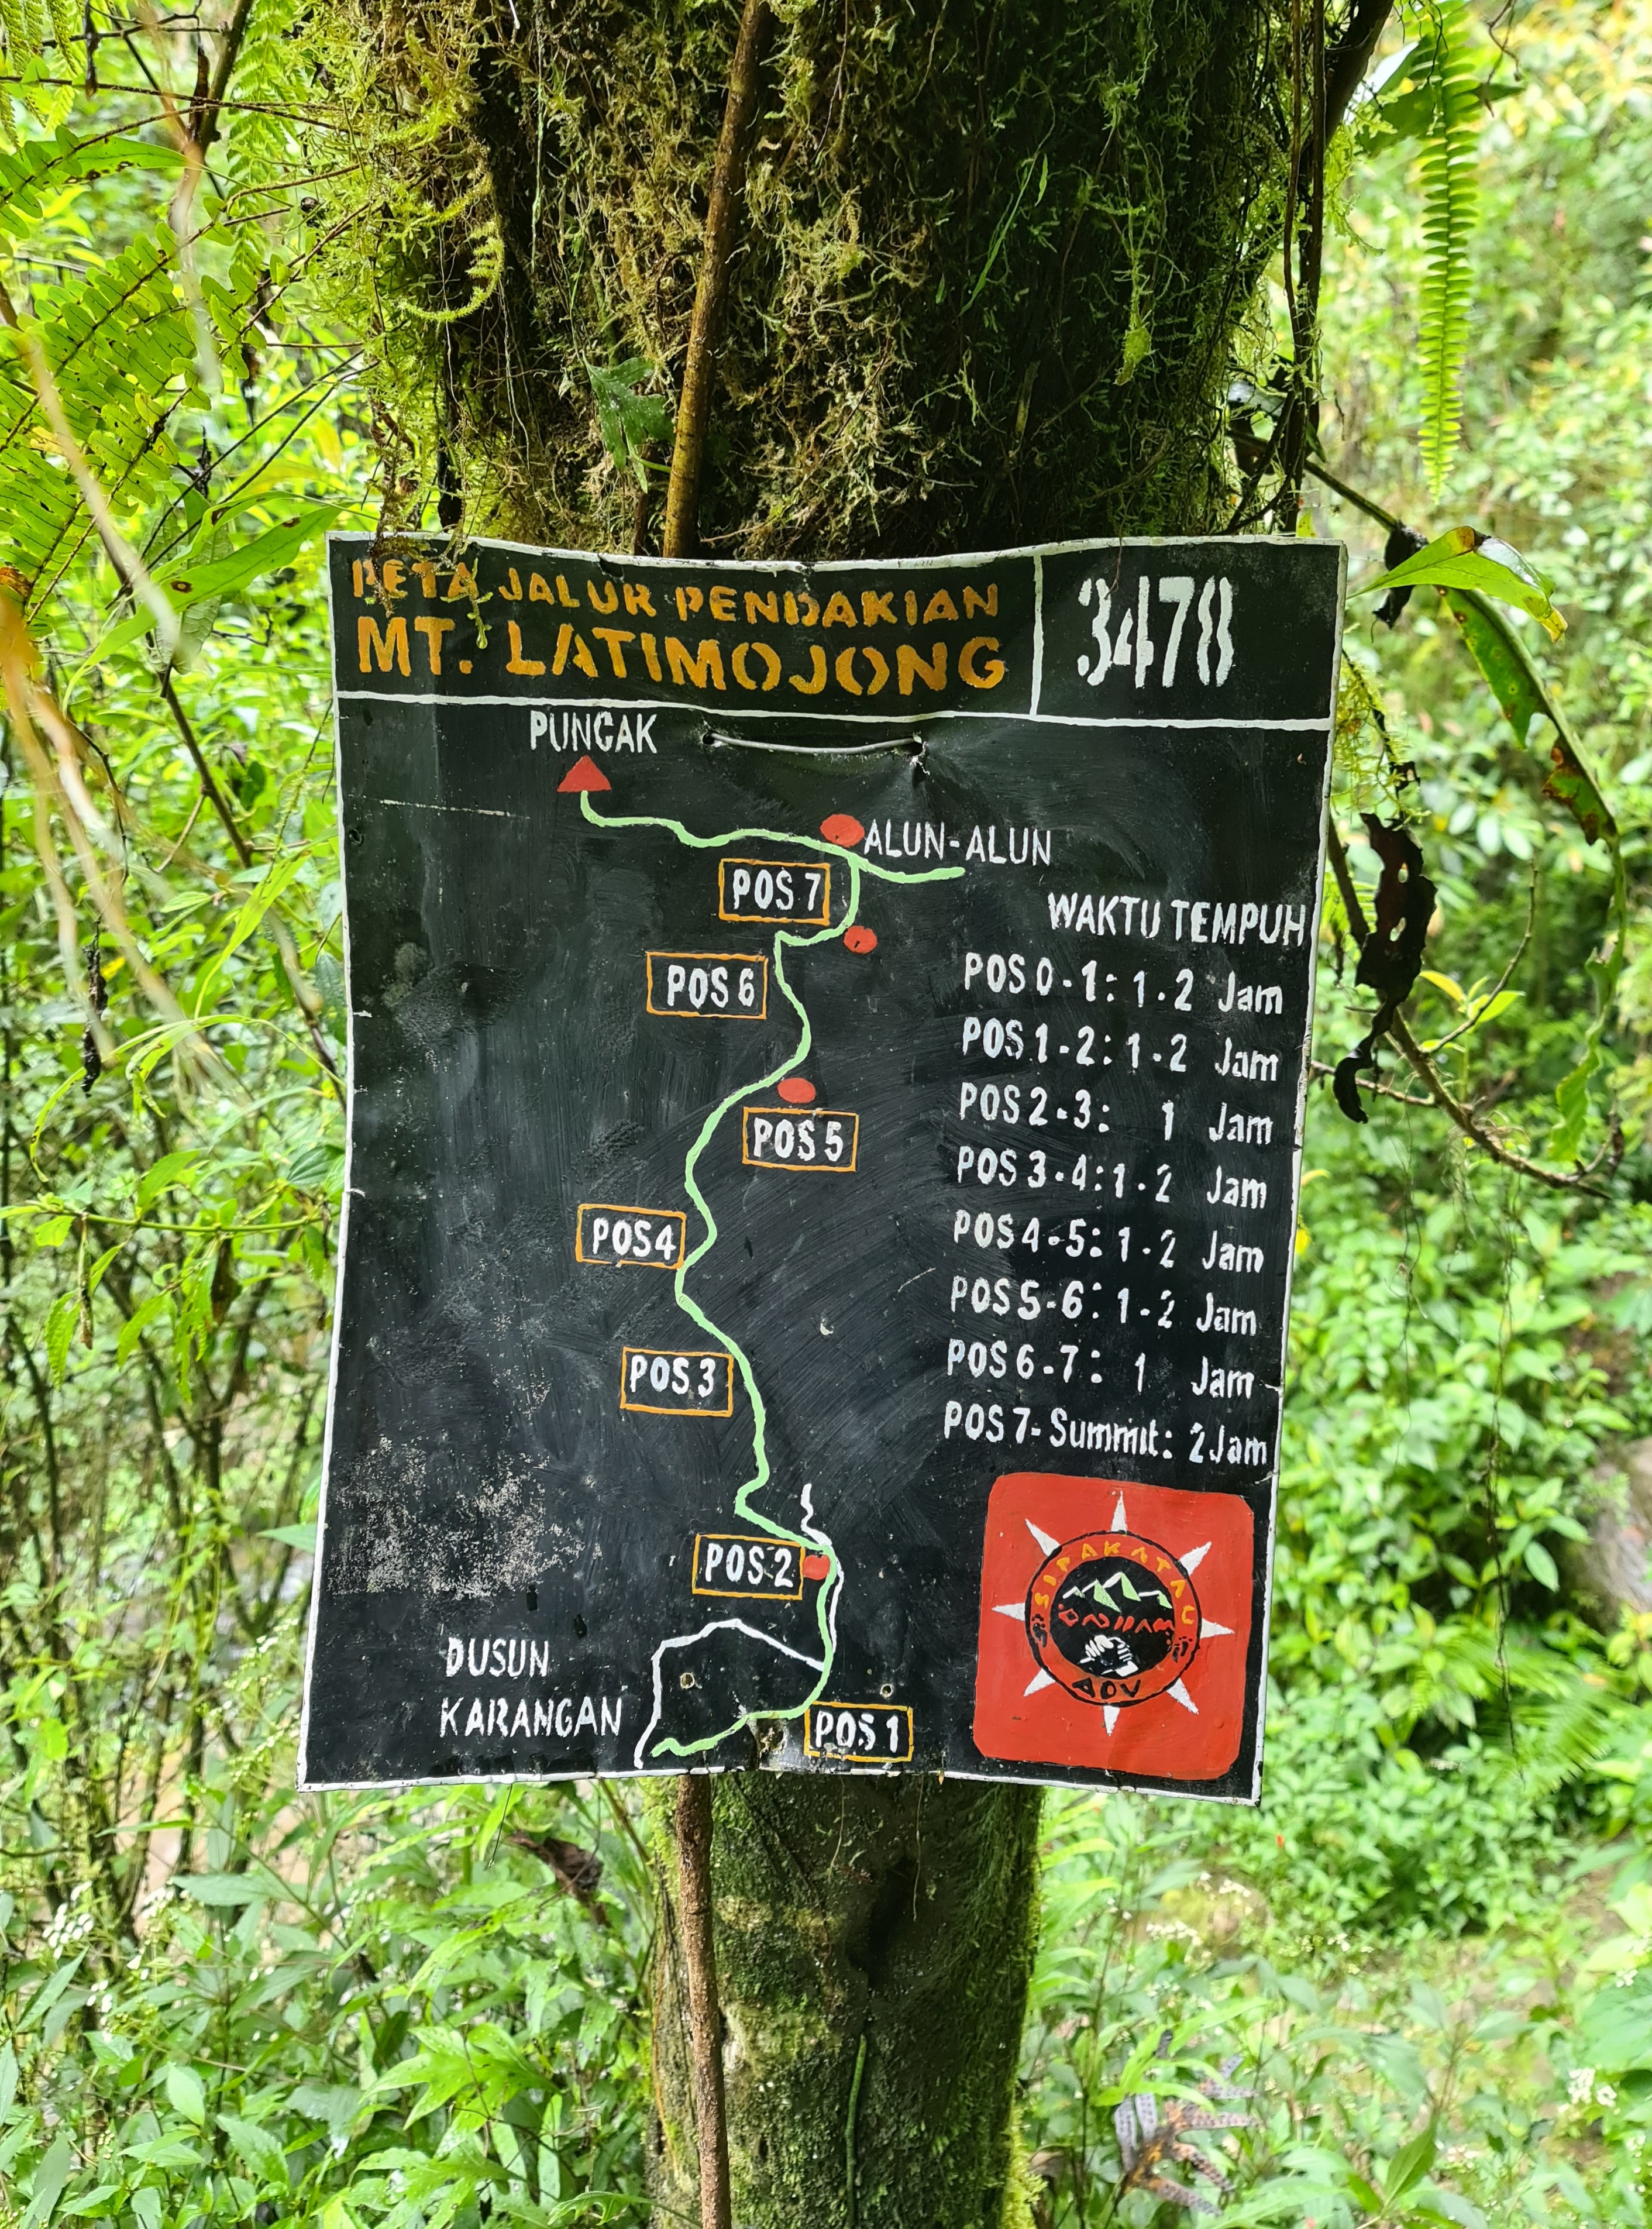 PETA JALUR PENDAKIAN
MT. LATIMOJONG
3478
PUNCAK
ALUN-ALUN
POS 7
POS 6
POS 5
POS 4
POS 3
POS 2
DUSUN
KARANGAN
POS 1
WAKTU TEMPUH
POS 0-1: 1-2 Jam
POS 1-2: 1-2 Jam
POS 2-3: 1 Jam
POS 3-4: 1-2 Jam
POS 4-5: 1-2 Jam
POS 5-6: 1-2 Jam
POS 6-7: 1 Jam
POS 7- Summit: 2 Jam
SIPAKATAU
ADV